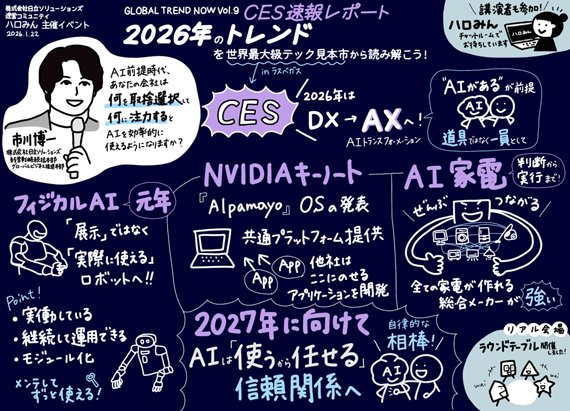 株式会社日立ソリューションズ
運営コミュニティ
ハロみん 主催イベント
2026.1.22
GLOBAL TREND NOW Vol.9 CES速報レポート
2026年のトレンド
を世界最大級テック見本市から読み解こう!
講演者も参加!
ハロみん
チャットルームで
お待ちしています
AI前提時代、
あなたの会社は
何を取捨選択して
何に注力すると
AIを効率的に
使えるようになりますか?
市川博一
株式会社日立ソリューションズ
グローバルビジネス推進本部
in ラスベガス
CES
2026年は
DX→AXへ!
AIトランスフォーメーション
"AIがある"が前提
AI
道具ではなく一員として
フィジカルAI 元年
「展示」ではなく
「実際に使える」
ロボットへ!!
Point!
・実働している
・継続して運用できる
・モジュール化
メンテして
ずっと使える!
NVIDIAキーノート
『Alpamayo』OSの発表
共通プラットフォーム提供
App
App
他社は
ここにのせる
アプリケーションを開発
AI家電
判断から
実行まで!
ぜんぶ つながる
全ての家電が作れる
総合メーカーが 強い
2027年に向けて
AIは「使うから任せる」
信頼関係へ
自律的な
相棒!
AI
リアル会場
ラウンドテーブル開催
しました!
wai
wai